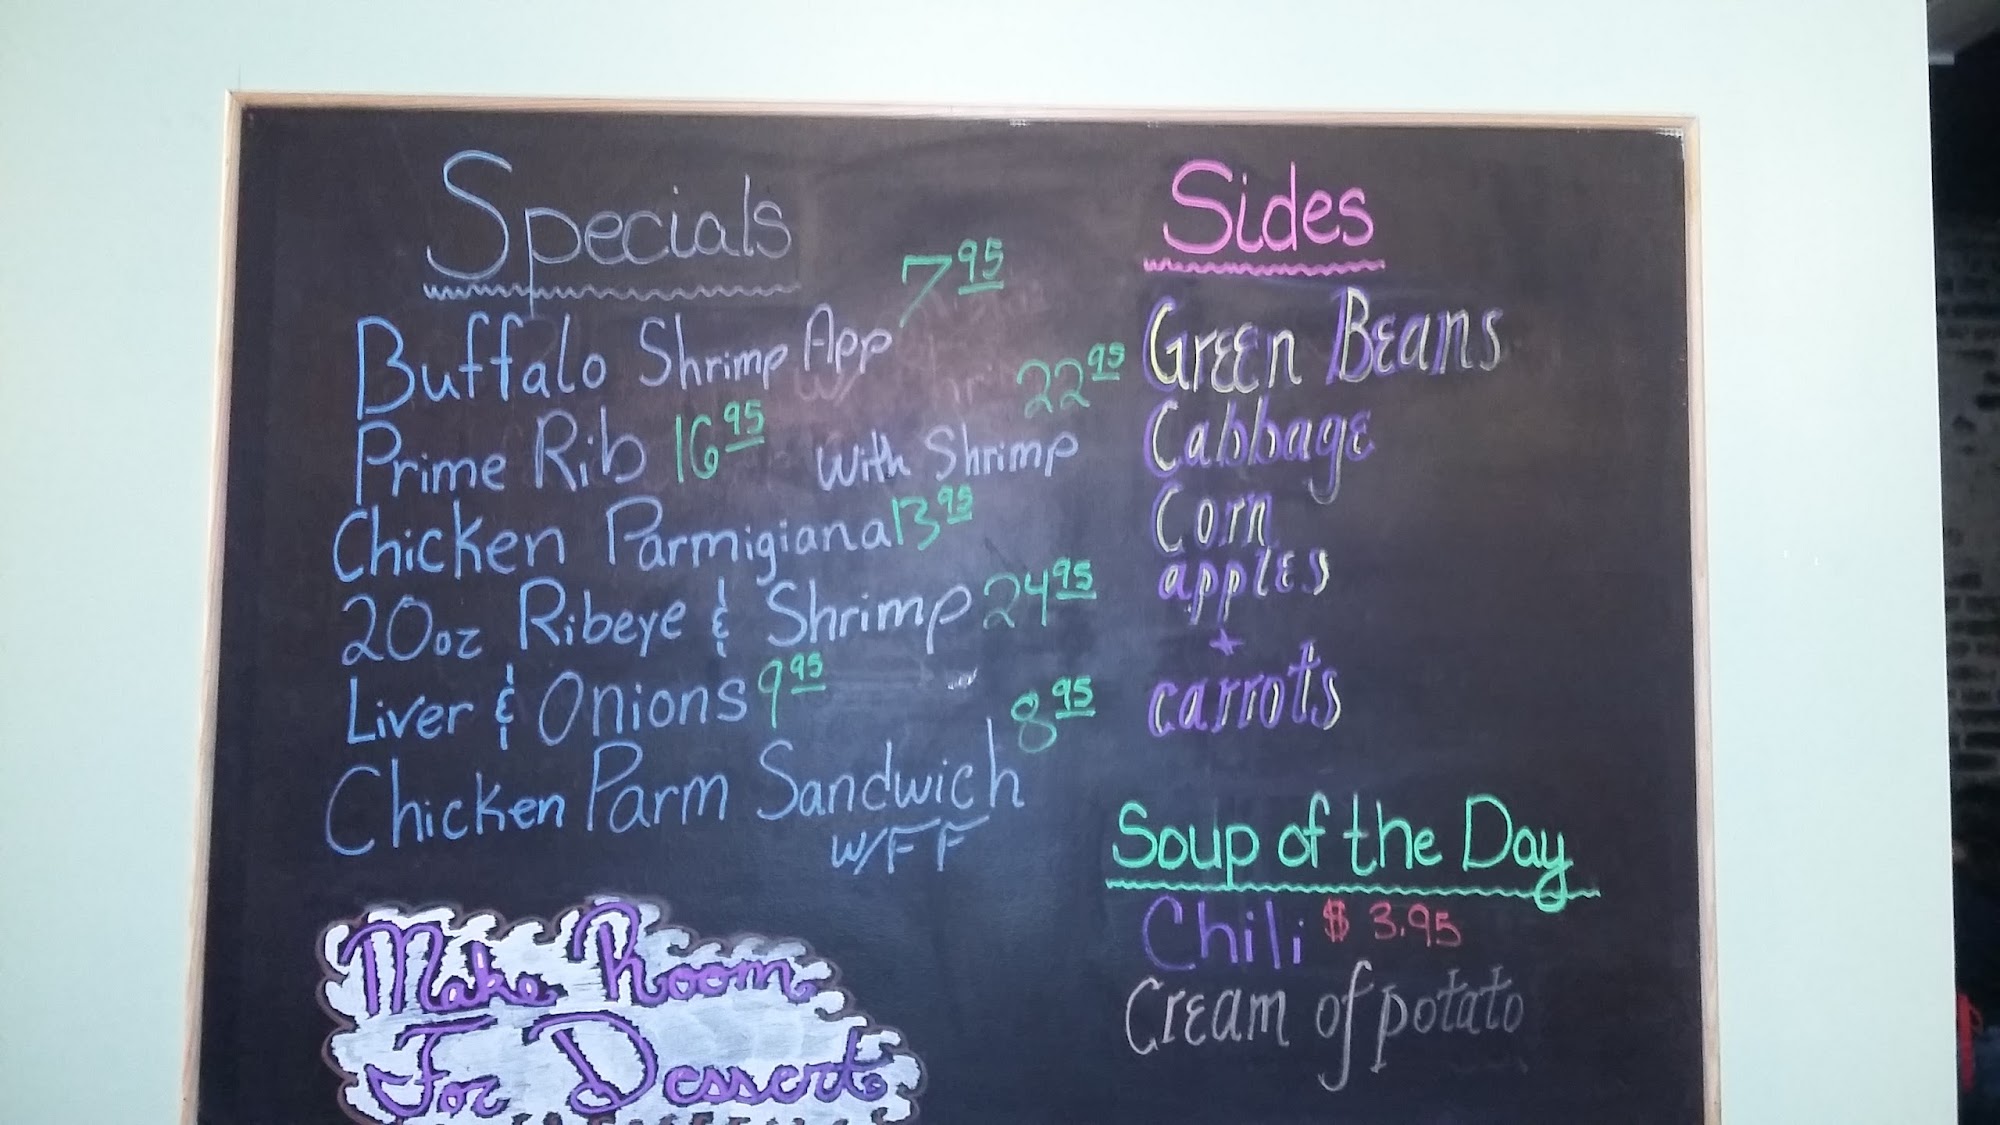 Specials
Buffalo Shrimp App 7 95
Prime Rib 16 95 With Shrimp 22 95
Chicken Parmigiana 13 95
20oz Ribeye & Shrimp 24 95
Liver & Onions 9 95
Chicken Parm Sandwich 8 95
W/FF
Make Room
For Dessert
Sides
Green Beans
Cabbage
Corn
apples
carrots
Soup of the Day
Chili $ 3.95
Cream of potato